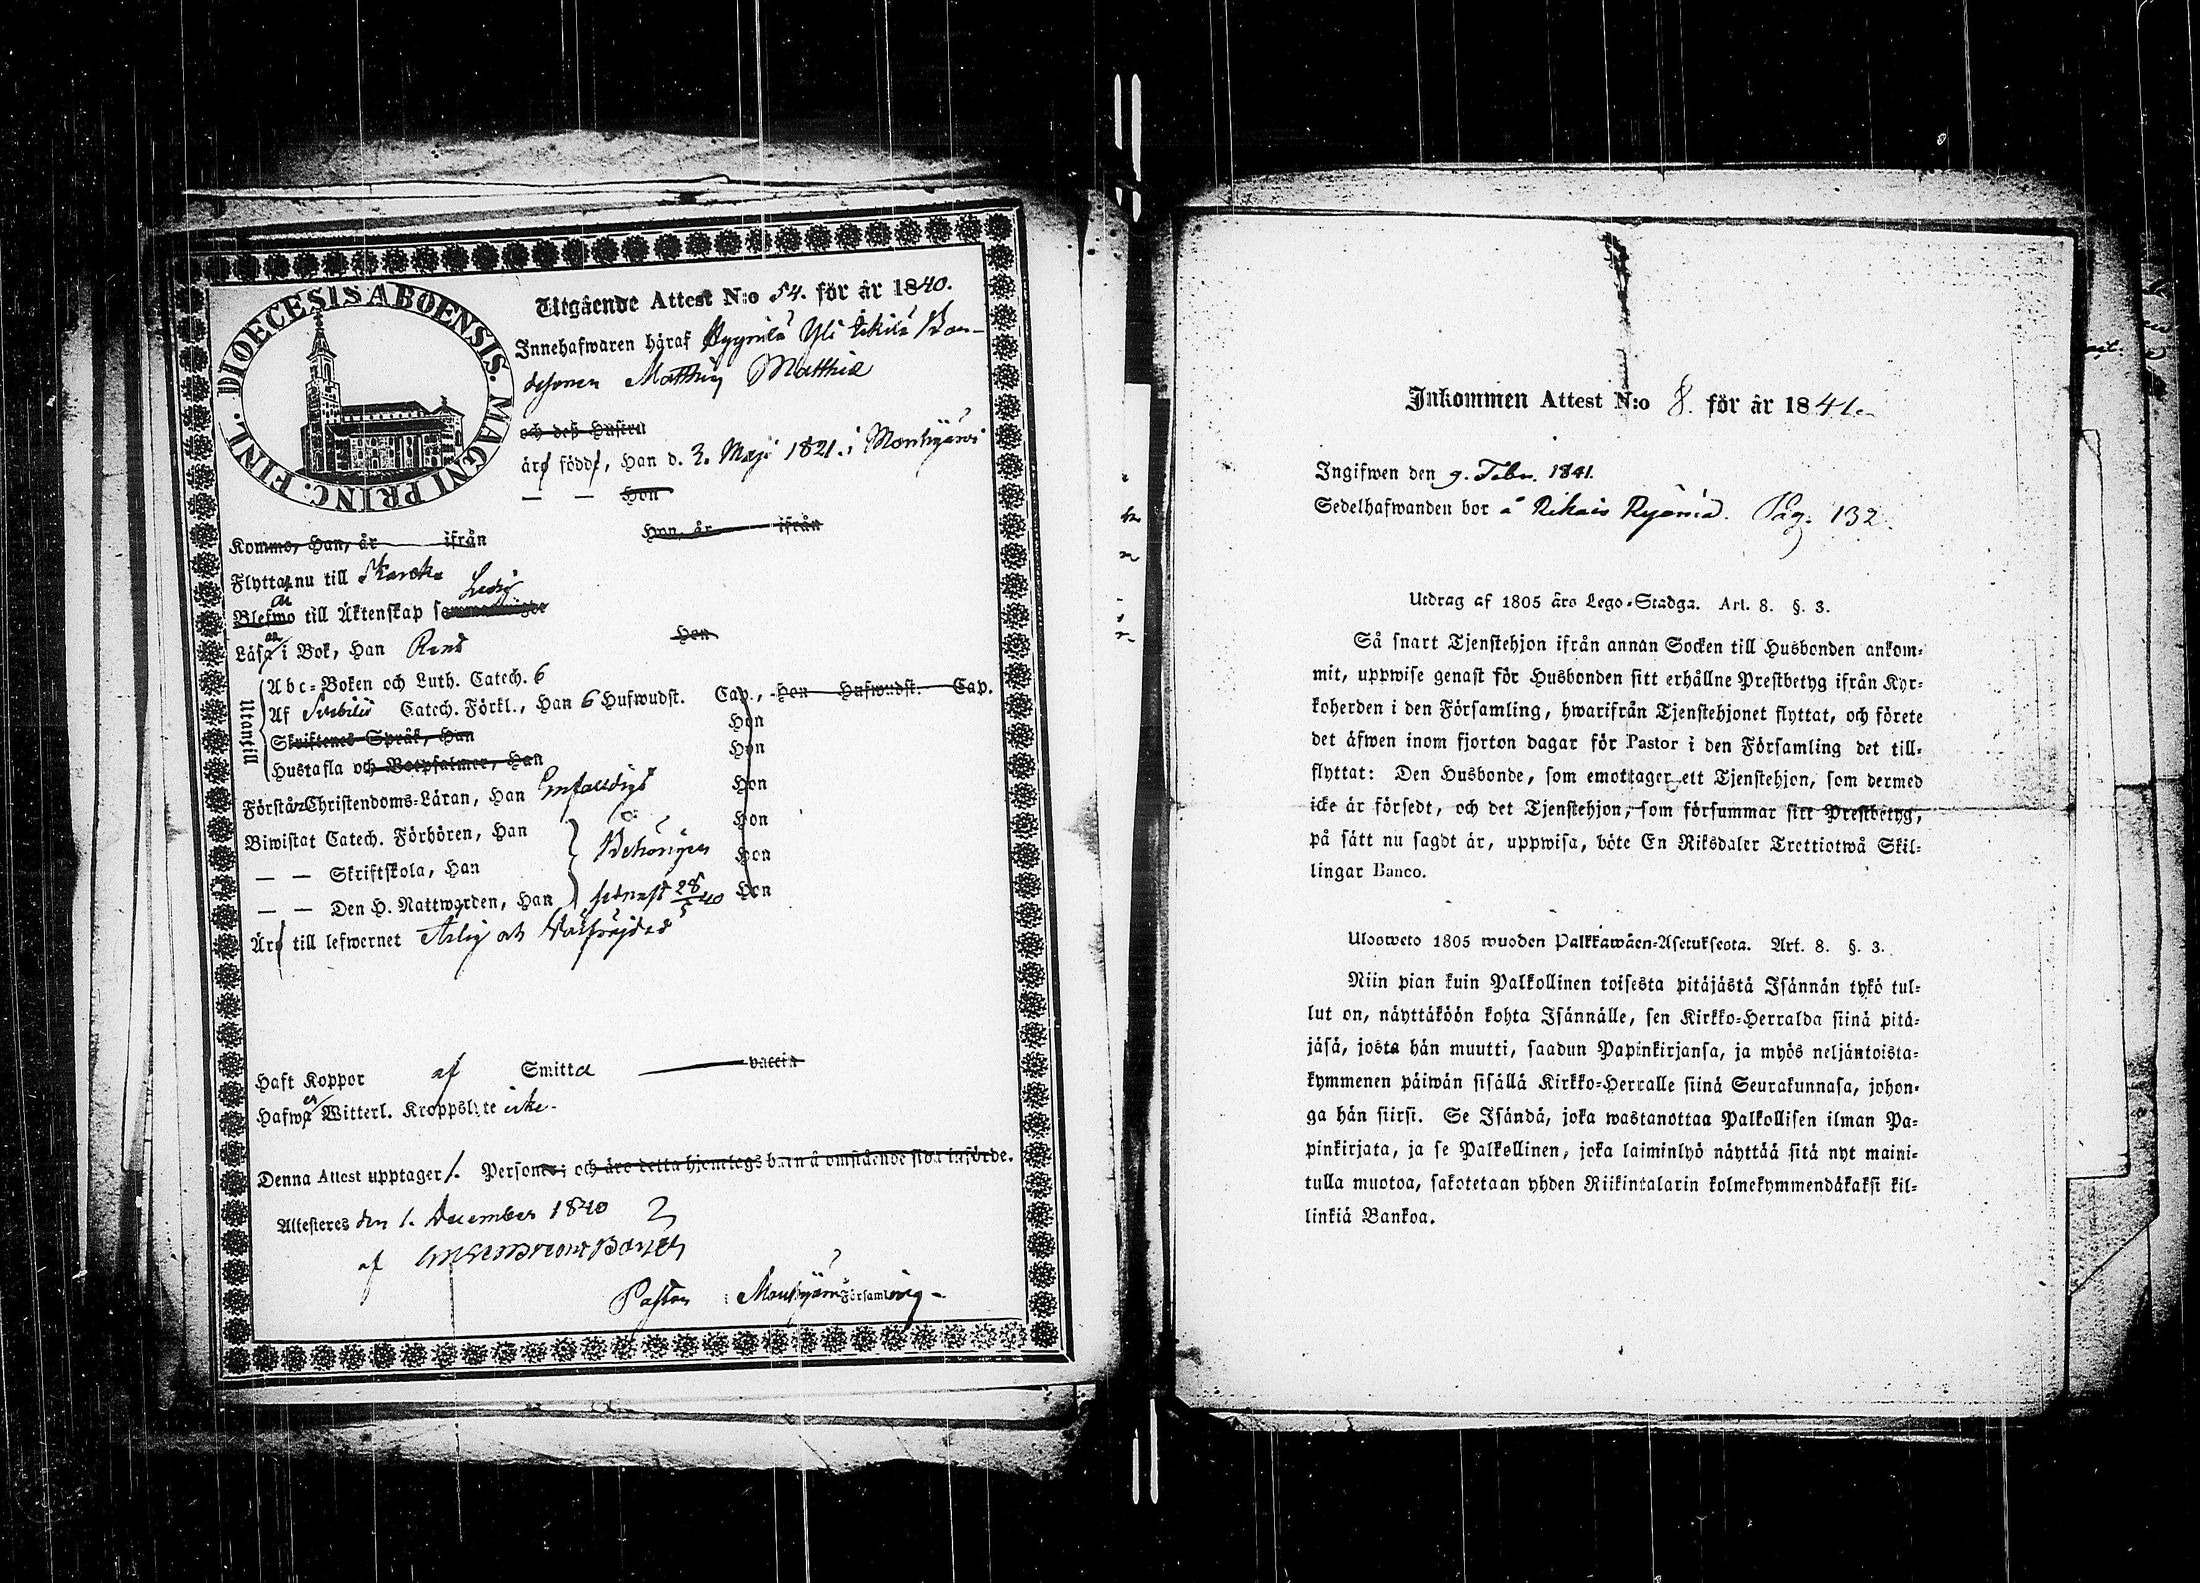 DIOECESIS ABOENSIS. MAGNI PRINC. FINL.
Utgående Attest N:o 54. för år 1840.
Innehafwaren häraf Yli Bon-
desonen Matthiæ
och deß Hustru
äro född, Han d. 3. Maji 1821. i Mouhijärvi
— — Hon
Kommo, Han, år ifrån Hon, år ifrån
Flyttar nu till Karcku
Blefwo till Äktenskap Ledig
Läsa i Bok, Han Rent Hon
Utantill
Abc-Boken och Luth. Catech. 6
Af Svebilii Catech. Förkl., Han 6 Hufwudst. Cap., Hon Hufwudst. Cap.
Skriftenes Språk, Han Hon
Hustafla och Botpsalmer, Han Hon
Förstår Christendoms-Läran, Han Enfaldigt Hon
Biwistat Catech. Förhören, Han Hon
— — Skriftskola, Han Behörigen Hon
— — Den H. Nattwarden, Han sednast 28/5 40 Hon
Äro till lefwernet Ärlig och Wälfräjdad
Haft Koppor af Smitta vaccin
Hafwa Witterl. Kroppslyte icke.
Denna Attest upptager 1. Personer; och äro detta hjonelags barn å omstående sida införde.
Attesteres den 1. December 1840
af
Pastor i Mouhijärvi Församling
Inkommen Attest N:o 8. för år 1841.
Ingifwen den 9. Febr. 1841.
Sedelhafwanden bor å Pag. 132.
Utdrag af 1805 års Lego-Stadga. Art. 8. §. 3.
Så snart Tjenstehjon ifrån annan Socken till Husbonden ankom-
mit, uppwise genast för Husbonden sitt erhållne Prestbetyg ifrån Kyr-
koherden i den Församling, hwarifrån Tjenstehjonet flyttat, och förete
det äfwen inom fjorton dagar för Pastor i den Församling det till-
flyttat: Den Husbonde, som emottager ett Tjenstehjon, som dermed
icke är försedt, och det Tjenstehjon, som försummar sitt Prestbetyg,
på sätt nu sagdt är, uppwisa, böte En Riksdaler Trettiotwå Skil-
lingar Banco.
Ulosweto 1805 wuoden Palkkawäen-Asetuksesta. Art. 8. §. 3.
Niin pian kuin Palkollinen toisesta pitäjästä Isännän tykö tul-
lut on, näyttäköön kohta Isännälle, sen Kirkko-Herralda siinä pitä-
jäsä, josta hän muutti, saadun Papinkirjansa, ja myös neljäntoista-
kymmenen päiwän sisällä Kirkko-Herralle siinä Seurakunnasa, johon-
ga hän siirsi. Se Isändä, joka wastanottaa Palkollisen ilman Pa-
pinkirjata, ja se Palkollinen, joka laiminlyö näyttää sitä nyt maini-
tulla muotoa, sakotetaan yhden Riikintalarin kolmekymmendäkaksi kil-
linkiä Bankoa.